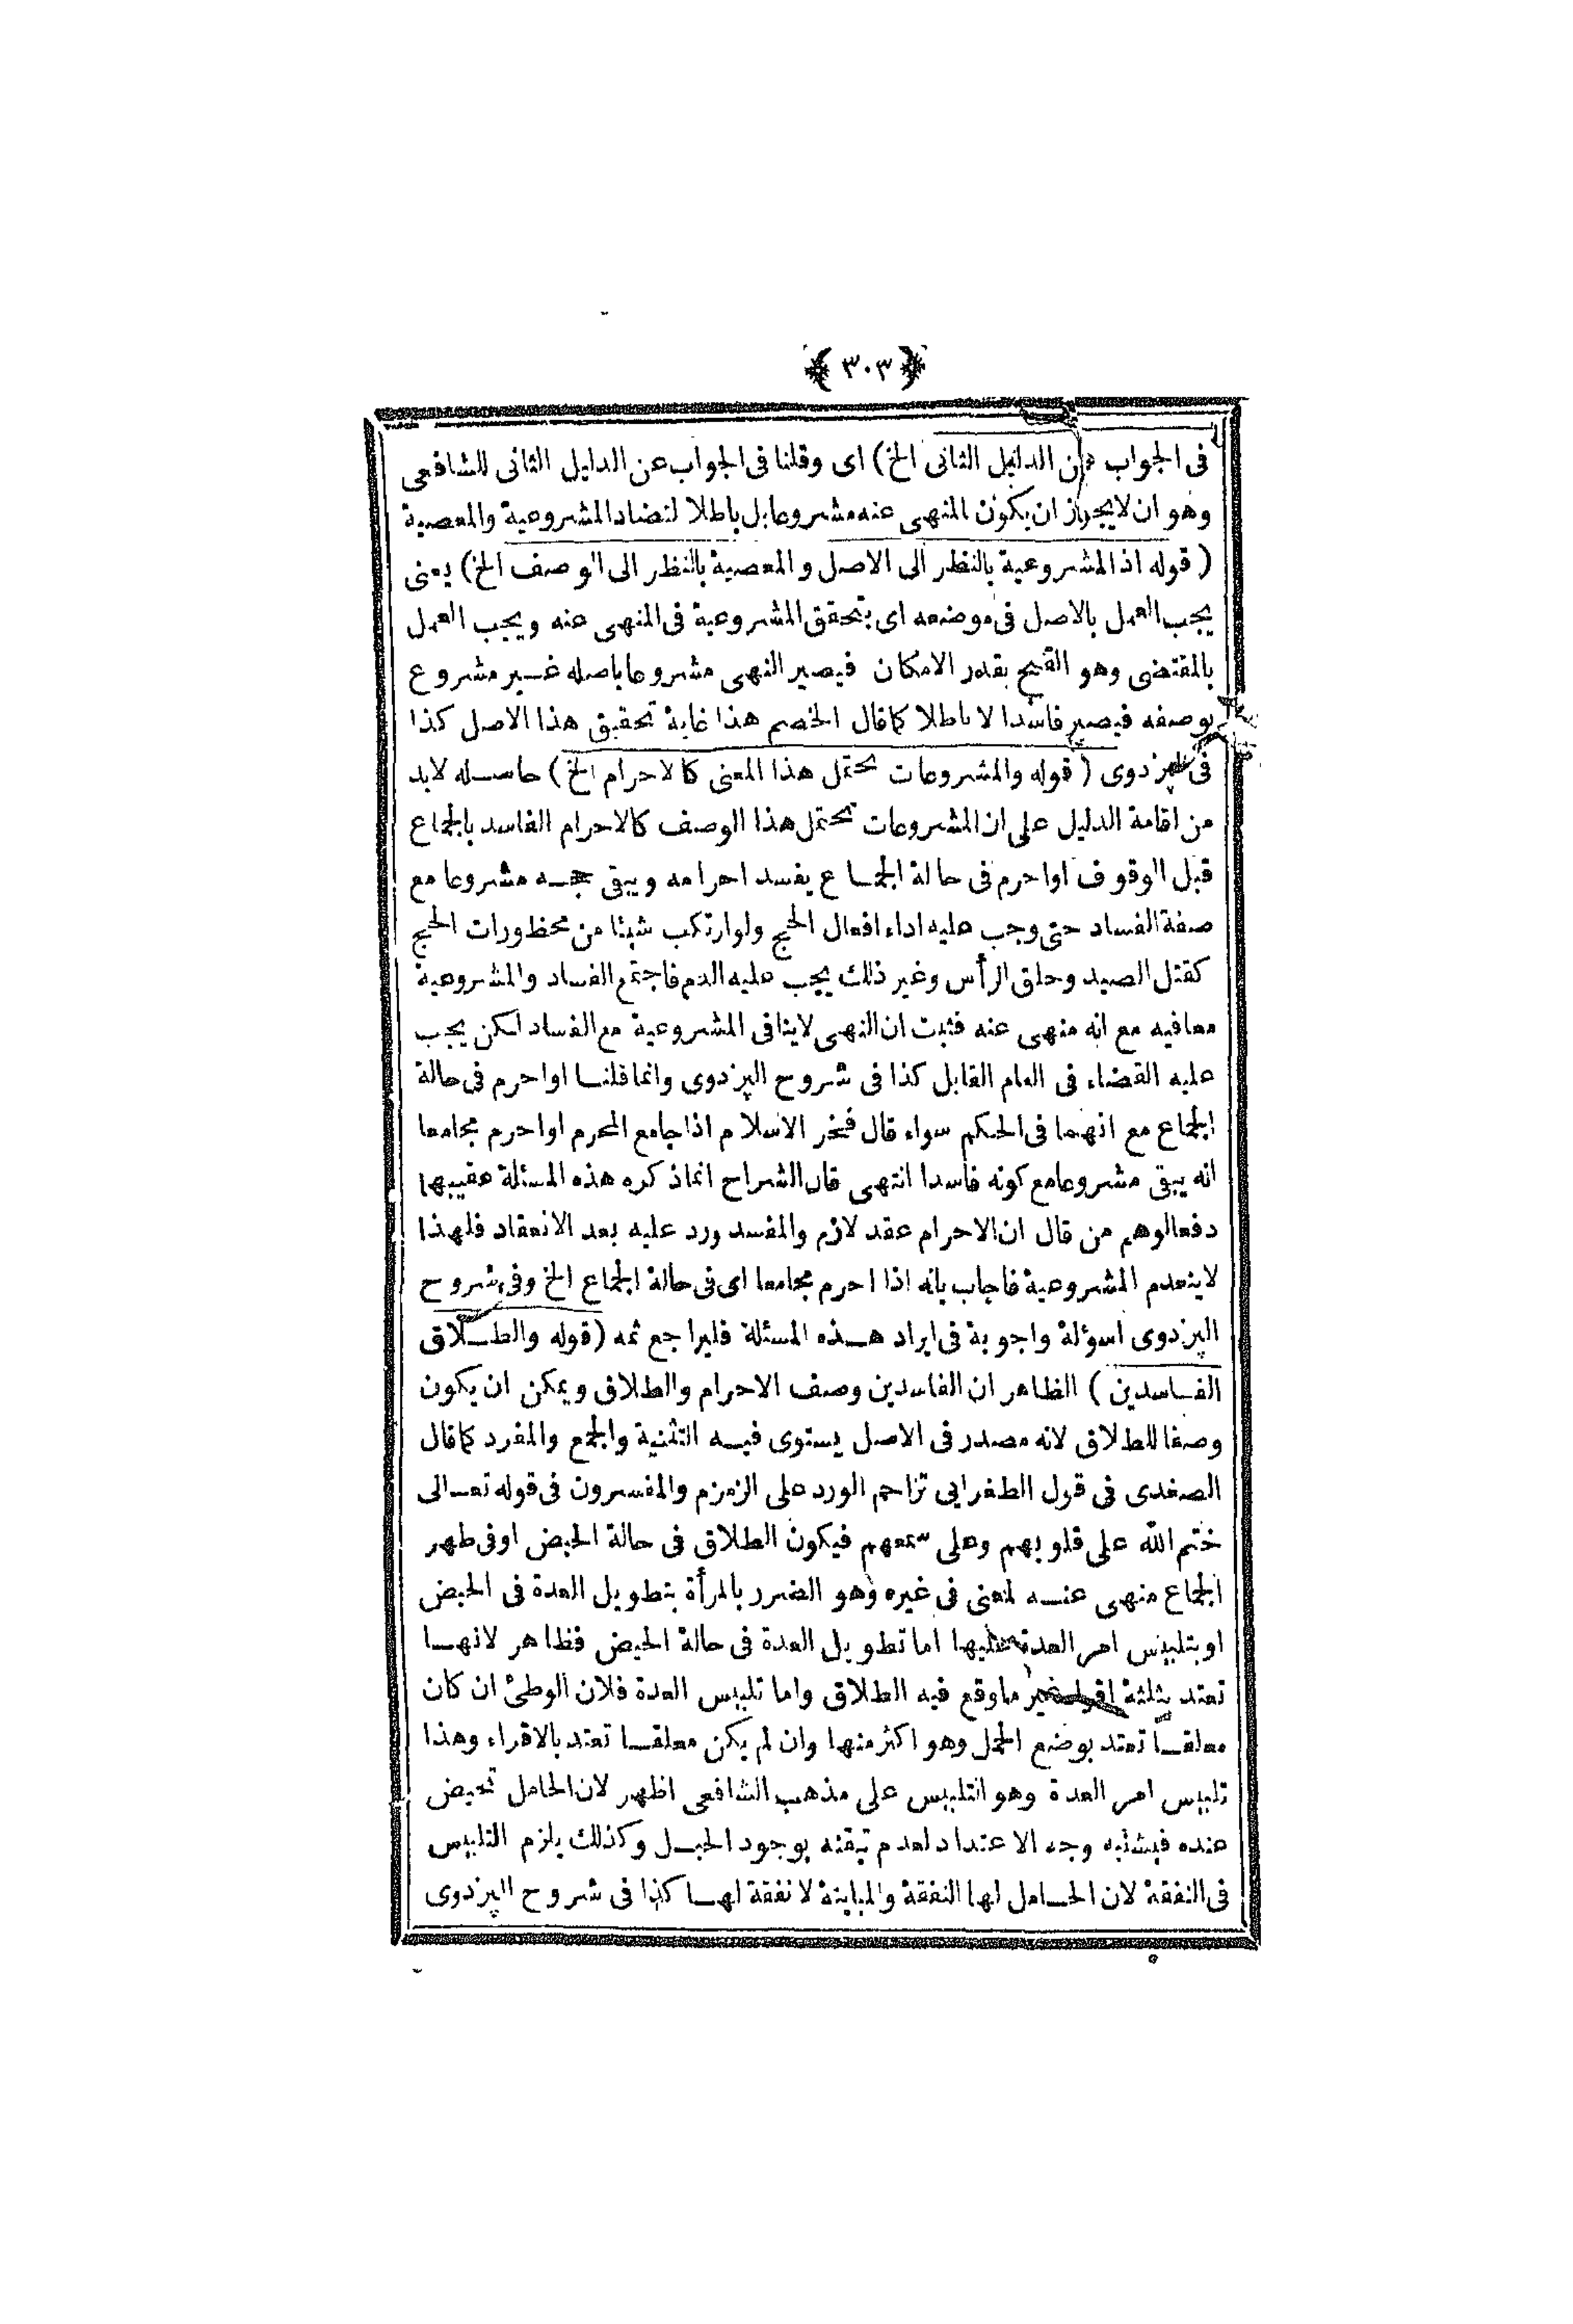 ﴿ ٣٠٣ ﴾
فى الجواب عن الدليل الثانى الخ) اى وقلنا فى الجواب عن الدليل الثانى للشافعى
وهو ان لا يجوز ان يكون المنهى عنه مشروعا بل باطلا لتضاد المشروعية والمعصية
( قوله اذ المشروعية بالنظر الى الاصل والمعصية بالنظر الى الوصف الخ) يعنى
يجب العمل بالاصل فى موضعه اى بتحقق المشروعية فى المنهى عنه ويجب العمل
بالمقتضى وهو القبح بقدر الامكان فيصير النهى مشروعا باصله غير مشروع
بوصفه فيصير فاسدا لا باطلا كما قال الخصم هذا غاية تحقيق هذا الاصل كذا
فى البزدوى ( قوله والمشروعات تحتمل هذا المعنى كالاحرام الخ) حاصله لابد
من اقامة الدليل على ان المشروعات تحتمل هذا الوصف كالاحرام الفاسد بالجماع
قبل الوقوف او احرم فى حالة الجماع يفسد احرامه ويبقى حجه مشروعا مع
صفة الفساد حتى وجب عليه اداء افعال الحج ولو ارتكب شيئا من محظورات الحج
كقتل الصيد وحلق الرأس وغير ذلك يجب عليه الدم فاجتمع الفساد والمشروعية
معا فيه مع انه منهى عنه فثبت ان النهى لا ينافى المشروعية مع الفساد لكن يجب
عليه القضاء فى العام القابل كذا فى شروح البزدوى وانما قلنا او احرم فى حالة
الجماع مع انهما فى الحكم سواء قال فخر الاسلام اذا جامع المحرم او احرم مجامعا
انه يبقى مشروعا مع كونه فاسدا انتهى قال الشراح انما ذكره هذه المسئلة عقيبها
دفعا لوهم من قال ان الاحرام عقد لازم والمفسد ورد عليه بعد الانعقاد فلهذا
لا ينعدم المشروعية فاجاب بانه اذا احرم مجامعا اى فى حالة الجماع الخ وفى شروح
البزدوى اسؤلة واجوبة فى ايراد هذه المسئلة فليراجع ثمه (قوله والطلاق
الفاسدين ) الظاهر ان الفاسدين وصف الاحرام والطلاق ويمكن ان يكون
وصفا للطلاق لانه مصدر فى الاصل يستوى فيه التثنية والجمع والمفرد كما قال
الصفدى فى قول الطغرايى تزاحم الورد على الزمزم والمفسرون فى قوله تعالى
ختم الله على قلوبهم وعلى سمعهم فيكون الطلاق فى حالة الحيض او فى طهر
الجماع منهى عنه لمعنى فى غيره وهو الضرر بالمرأة بتطويل العدة فى الحيض
او بتلبيس امر العدة عليها اما تطويل العدة فى حالة الحيض فظاهر لانها
تعتد بثلثة اقراء غير ما وقع فيه الطلاق واما تلبيس العدة فلان الوطئ ان كان
معلقا تعتد بوضع الحمل وهو اكثر منها وان لم يكن معلقا تعتد بالاقراء وهذا
تلبيس امر العدة وهو التلبيس على مذهب الشافعى اظهر لان الحامل تحيض
عنده فيشتبه وجه الاعتداد لعدم تيقنه بوجود الحبل وكذلك يلزم التلبيس
فى النفقة لان الحامل لها النفقة والمباينة لا نفقة لها كذا فى شروح البزدوى